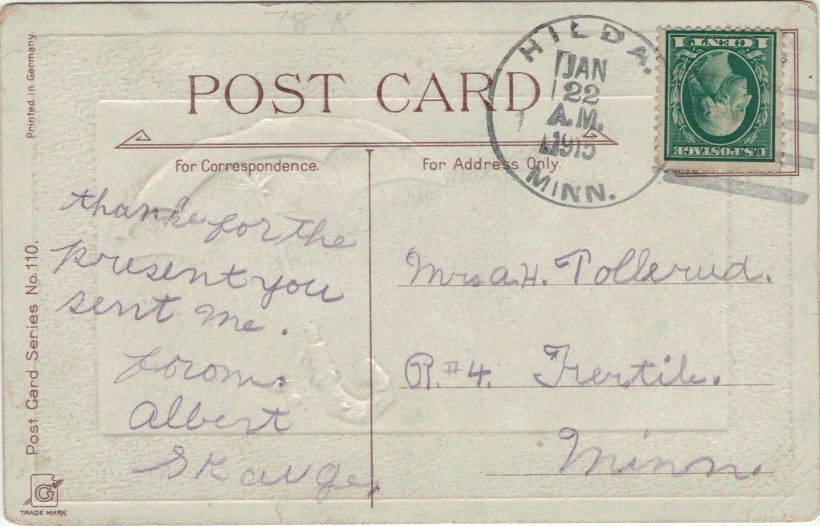 78 K
Printed in Germany.
POST CARD
HILDA.
JAN
22
A.M.
1915
MINN.
1 CENT 1
U.S. POSTAGE
For Correspondence.
For Address Only.
thanks for the
present you
sent me.
from.
Albert
Skauge.
Mrs A.H. Tollerud.
R. #4. Fertile.
Minn.
Post Card Series No. 110.
G
TRADE MARK